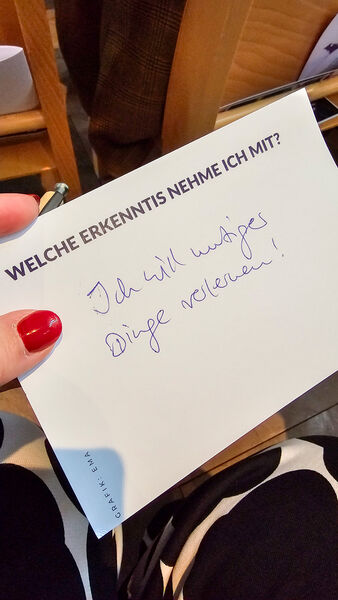 WELCHE ERKENNTIS NEHME ICH MIT?
Ich will mutiger
Dinge verlernen!
GRAFIK: EMA